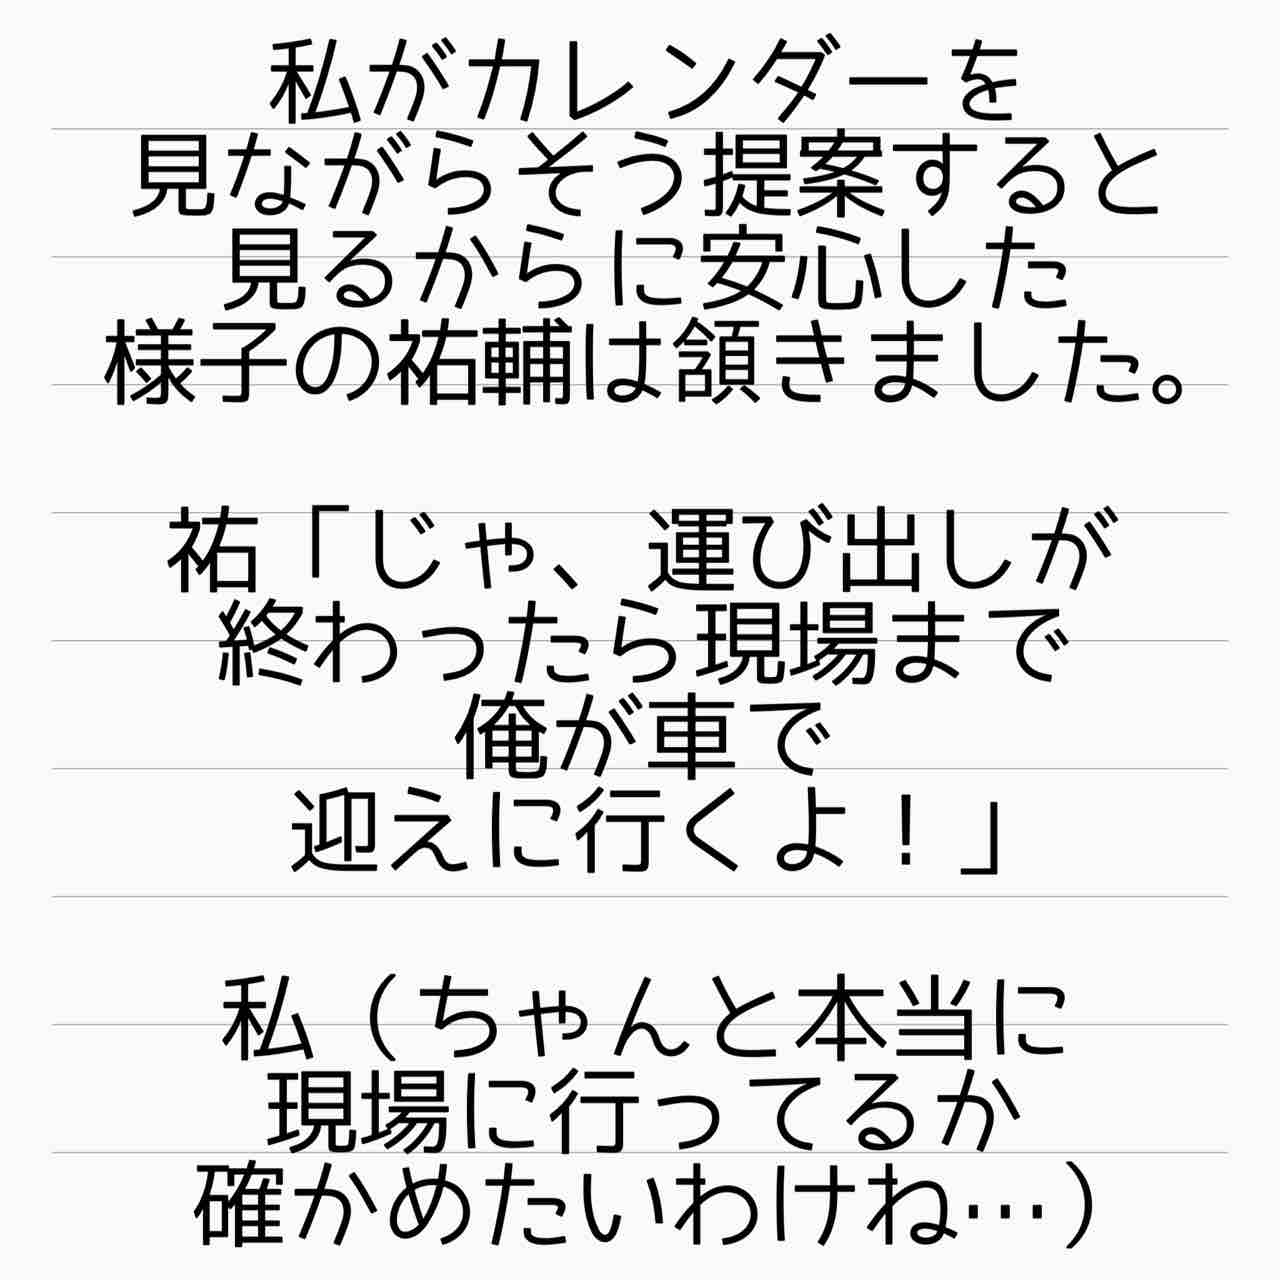 私がカレンダーを
見ながらそう提案すると
見るからに安心した
様子の祐輔は頷きました。
祐「じゃ、運び出しが
終わったら現場まで
俺が車で
迎えに行くよ！」
私（ちゃんと本当に
現場に行ってるか
確かめたいわけね…）